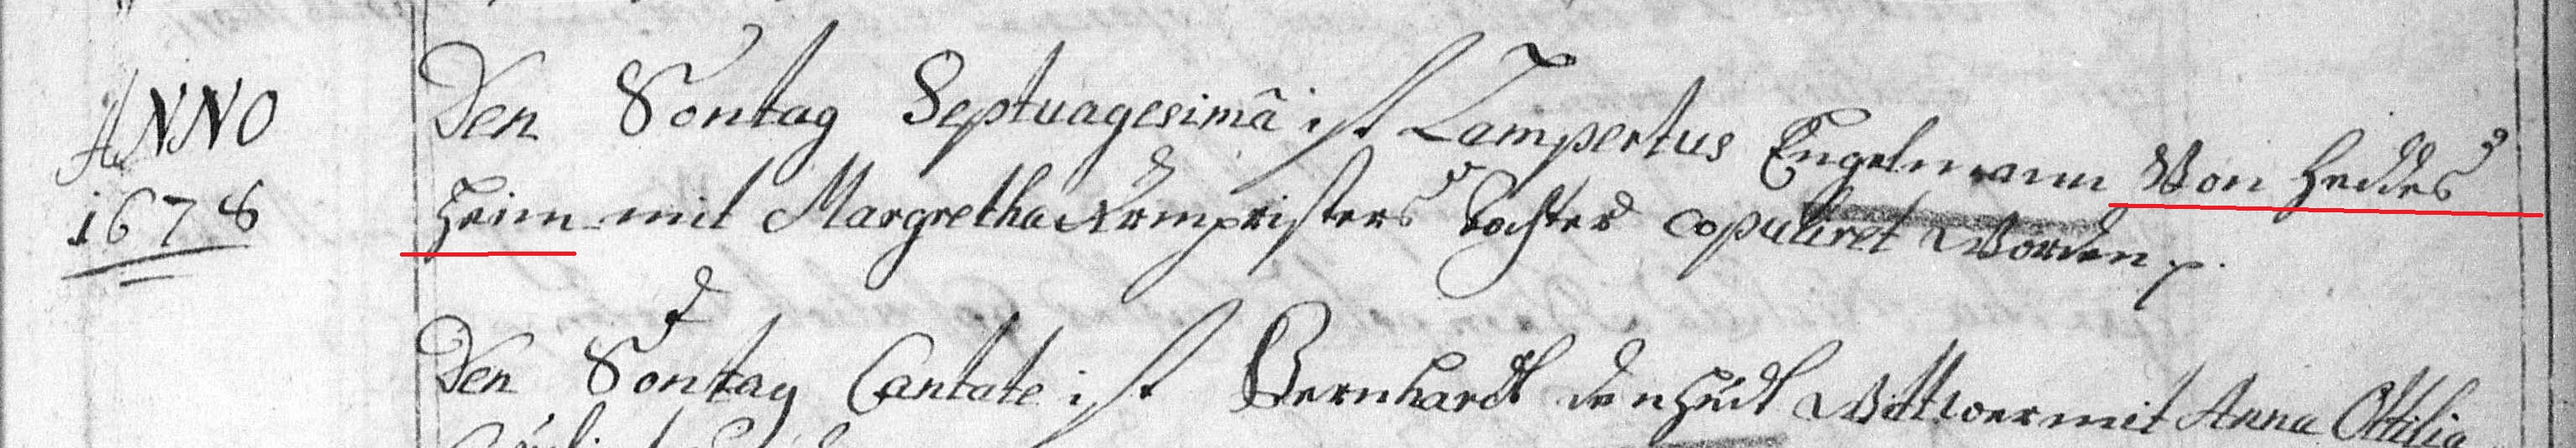 ANNO
1678
Den Sontag Septuagesimā ist Lampertus Engelmann Von Heddes
heim mit Margretha Armpristers Tochter copuliret Worden p.
Den Sontag Cantate ist Bernhardt Wittwer mit Anna Ottilia